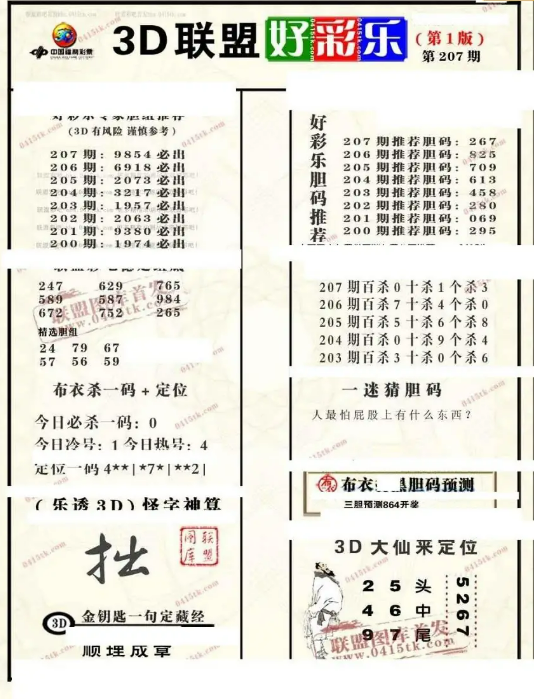 中国福利彩票
3D联盟好彩乐
0415tk.com
(第1版)
第207期
好彩乐专家胆组推荐
(3D有风险 谨慎参考)
207期:9854必出
206期:6918必出
205期:2073必出
204期:3217必出
203期:1957必出
202期:2063必出
201期:9380必出
200期:1974必出
247 629 765
589 587 984
672 752 265
精选胆组
24 79 67
57 56 59
布衣杀一码+定位
今日必杀一码:0
今日冷号:1今日热号:4
定位一码4**|*7*|**2|
(乐透3D)怪字神算
拙
联盟图库
3D 金钥匙一句定藏经
顺理成章
好彩乐胆码推荐
207期推荐胆码:267
206期推荐胆码:825
205期推荐胆码:709
204期推荐胆码:613
203期推荐胆码:458
202期推荐胆码:280
201期推荐胆码:069
200期推荐胆码:295
207期百杀0十杀1个杀3
206期百杀7十杀4个杀0
205期百杀5十杀6个杀8
204期百杀0十杀9个杀4
203期百杀3十杀0个杀6
一迷猜胆码
人最怕屁股上有什么东西?
布衣 胆码预测
三胆预测864开奖
3D大仙来定位
2 5 头
4 6 中
9 7 尾
5267
联盟图库首发
www.0415tk.com